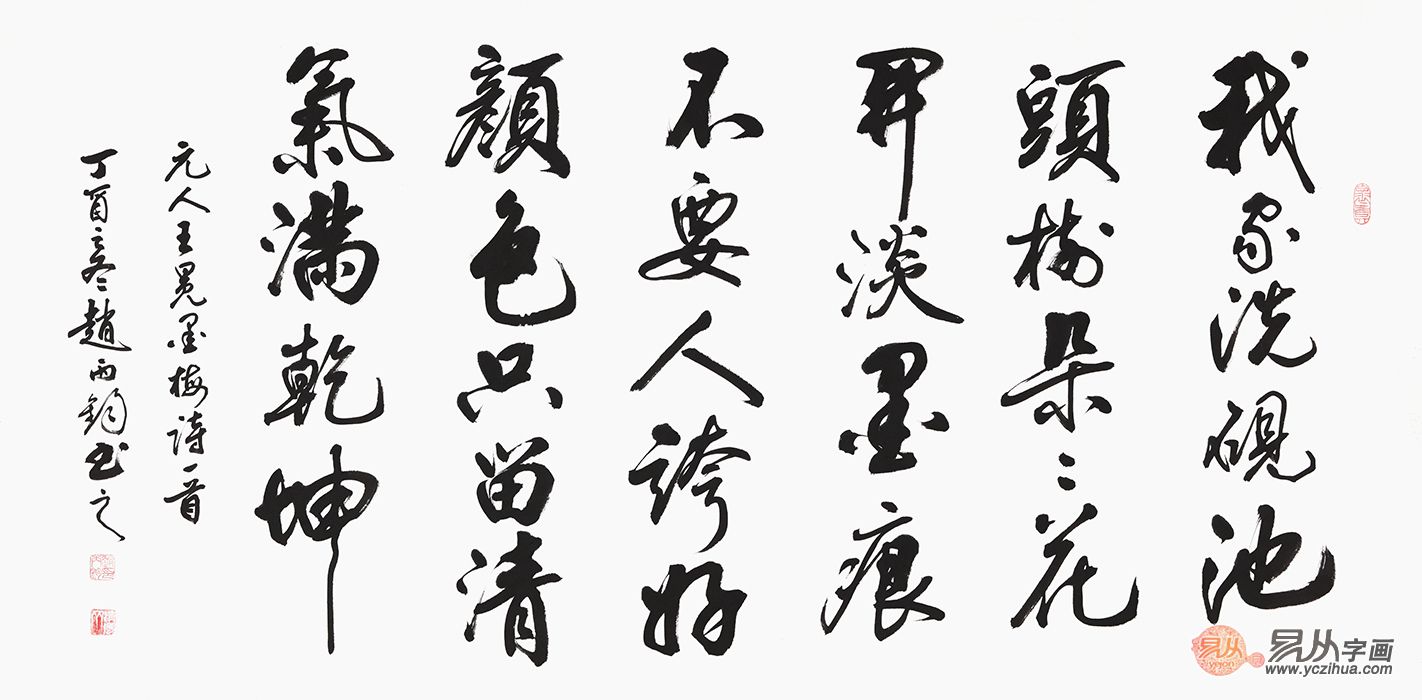 我家洗硯池
頭樹朵〻花
開淡墨痕
不要人誇好
顏色只留清
氣滿乾坤
元人王冕墨梅詩一首
丁酉之冬趙西鈞書之
易从
yejon
易从字画
www.yczihua.com